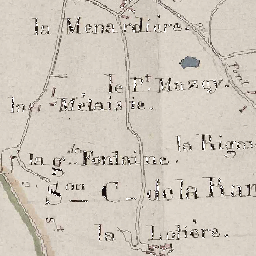 la Menardière
le P.t Muzay
la Métairie
la Rige
la g.de Fontaine.
S.on C. de la Ram
la Lohère.